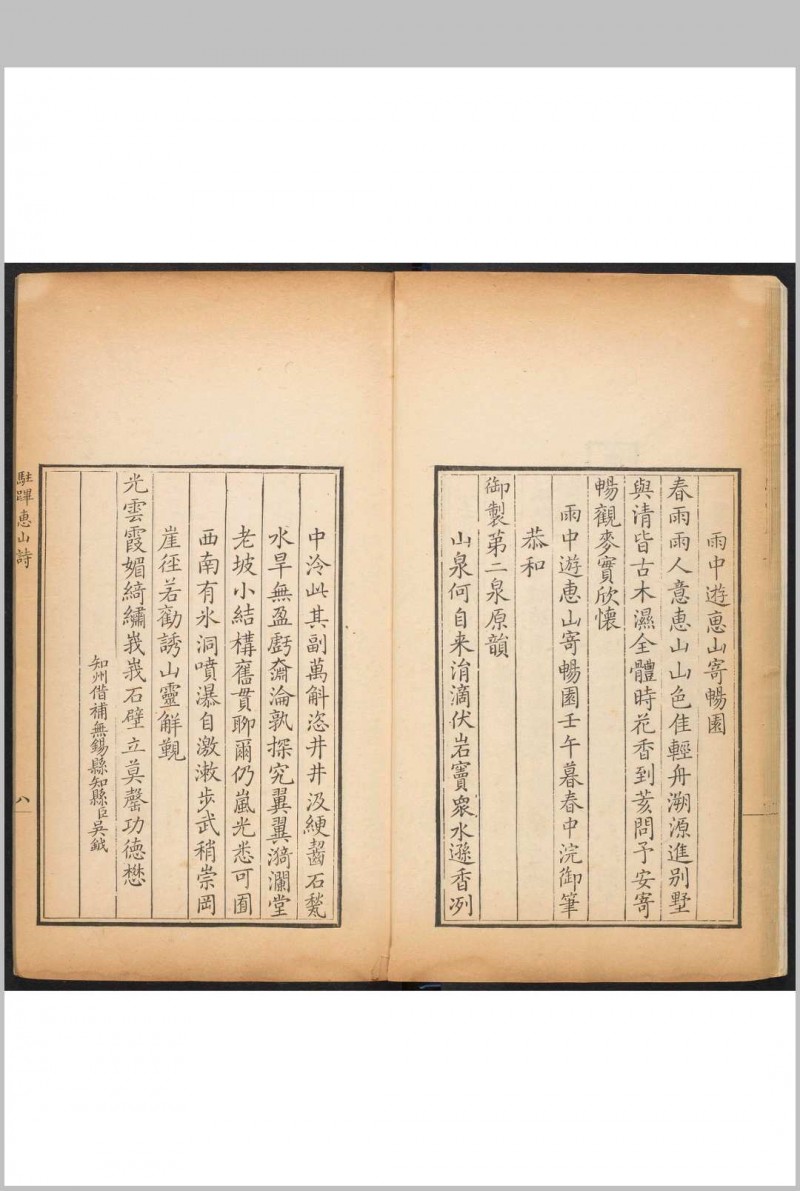 雨中遊惠山寄暢園
春雨雨人意惠山山色佳輕舟溯源進别墅
與清皆古木濕全體時花香到荄問予安寄
暢觀麥實欣懷
雨中遊惠山寄暢園壬午暮春中浣御筆
恭和
御製第二泉原韻
山泉何自来涓滴伏岩竇衆水遜香冽
中泠此其副萬斛恣井井汲綆齧石甃
水旱無盈虧奫淪孰探究翼翼漪瀾堂
老坡小結構舊貫聊爾仍嵐光悉可囿
西南有氷洞噴瀑自激潄步武稍崇岡
崖徑若勸誘山靈觧覲
光雲霞媚綺繡峩峩石壁立莫罄功徳懋
知州借補無錫縣知縣臣吳鉞
駐蹕惠山詩
八